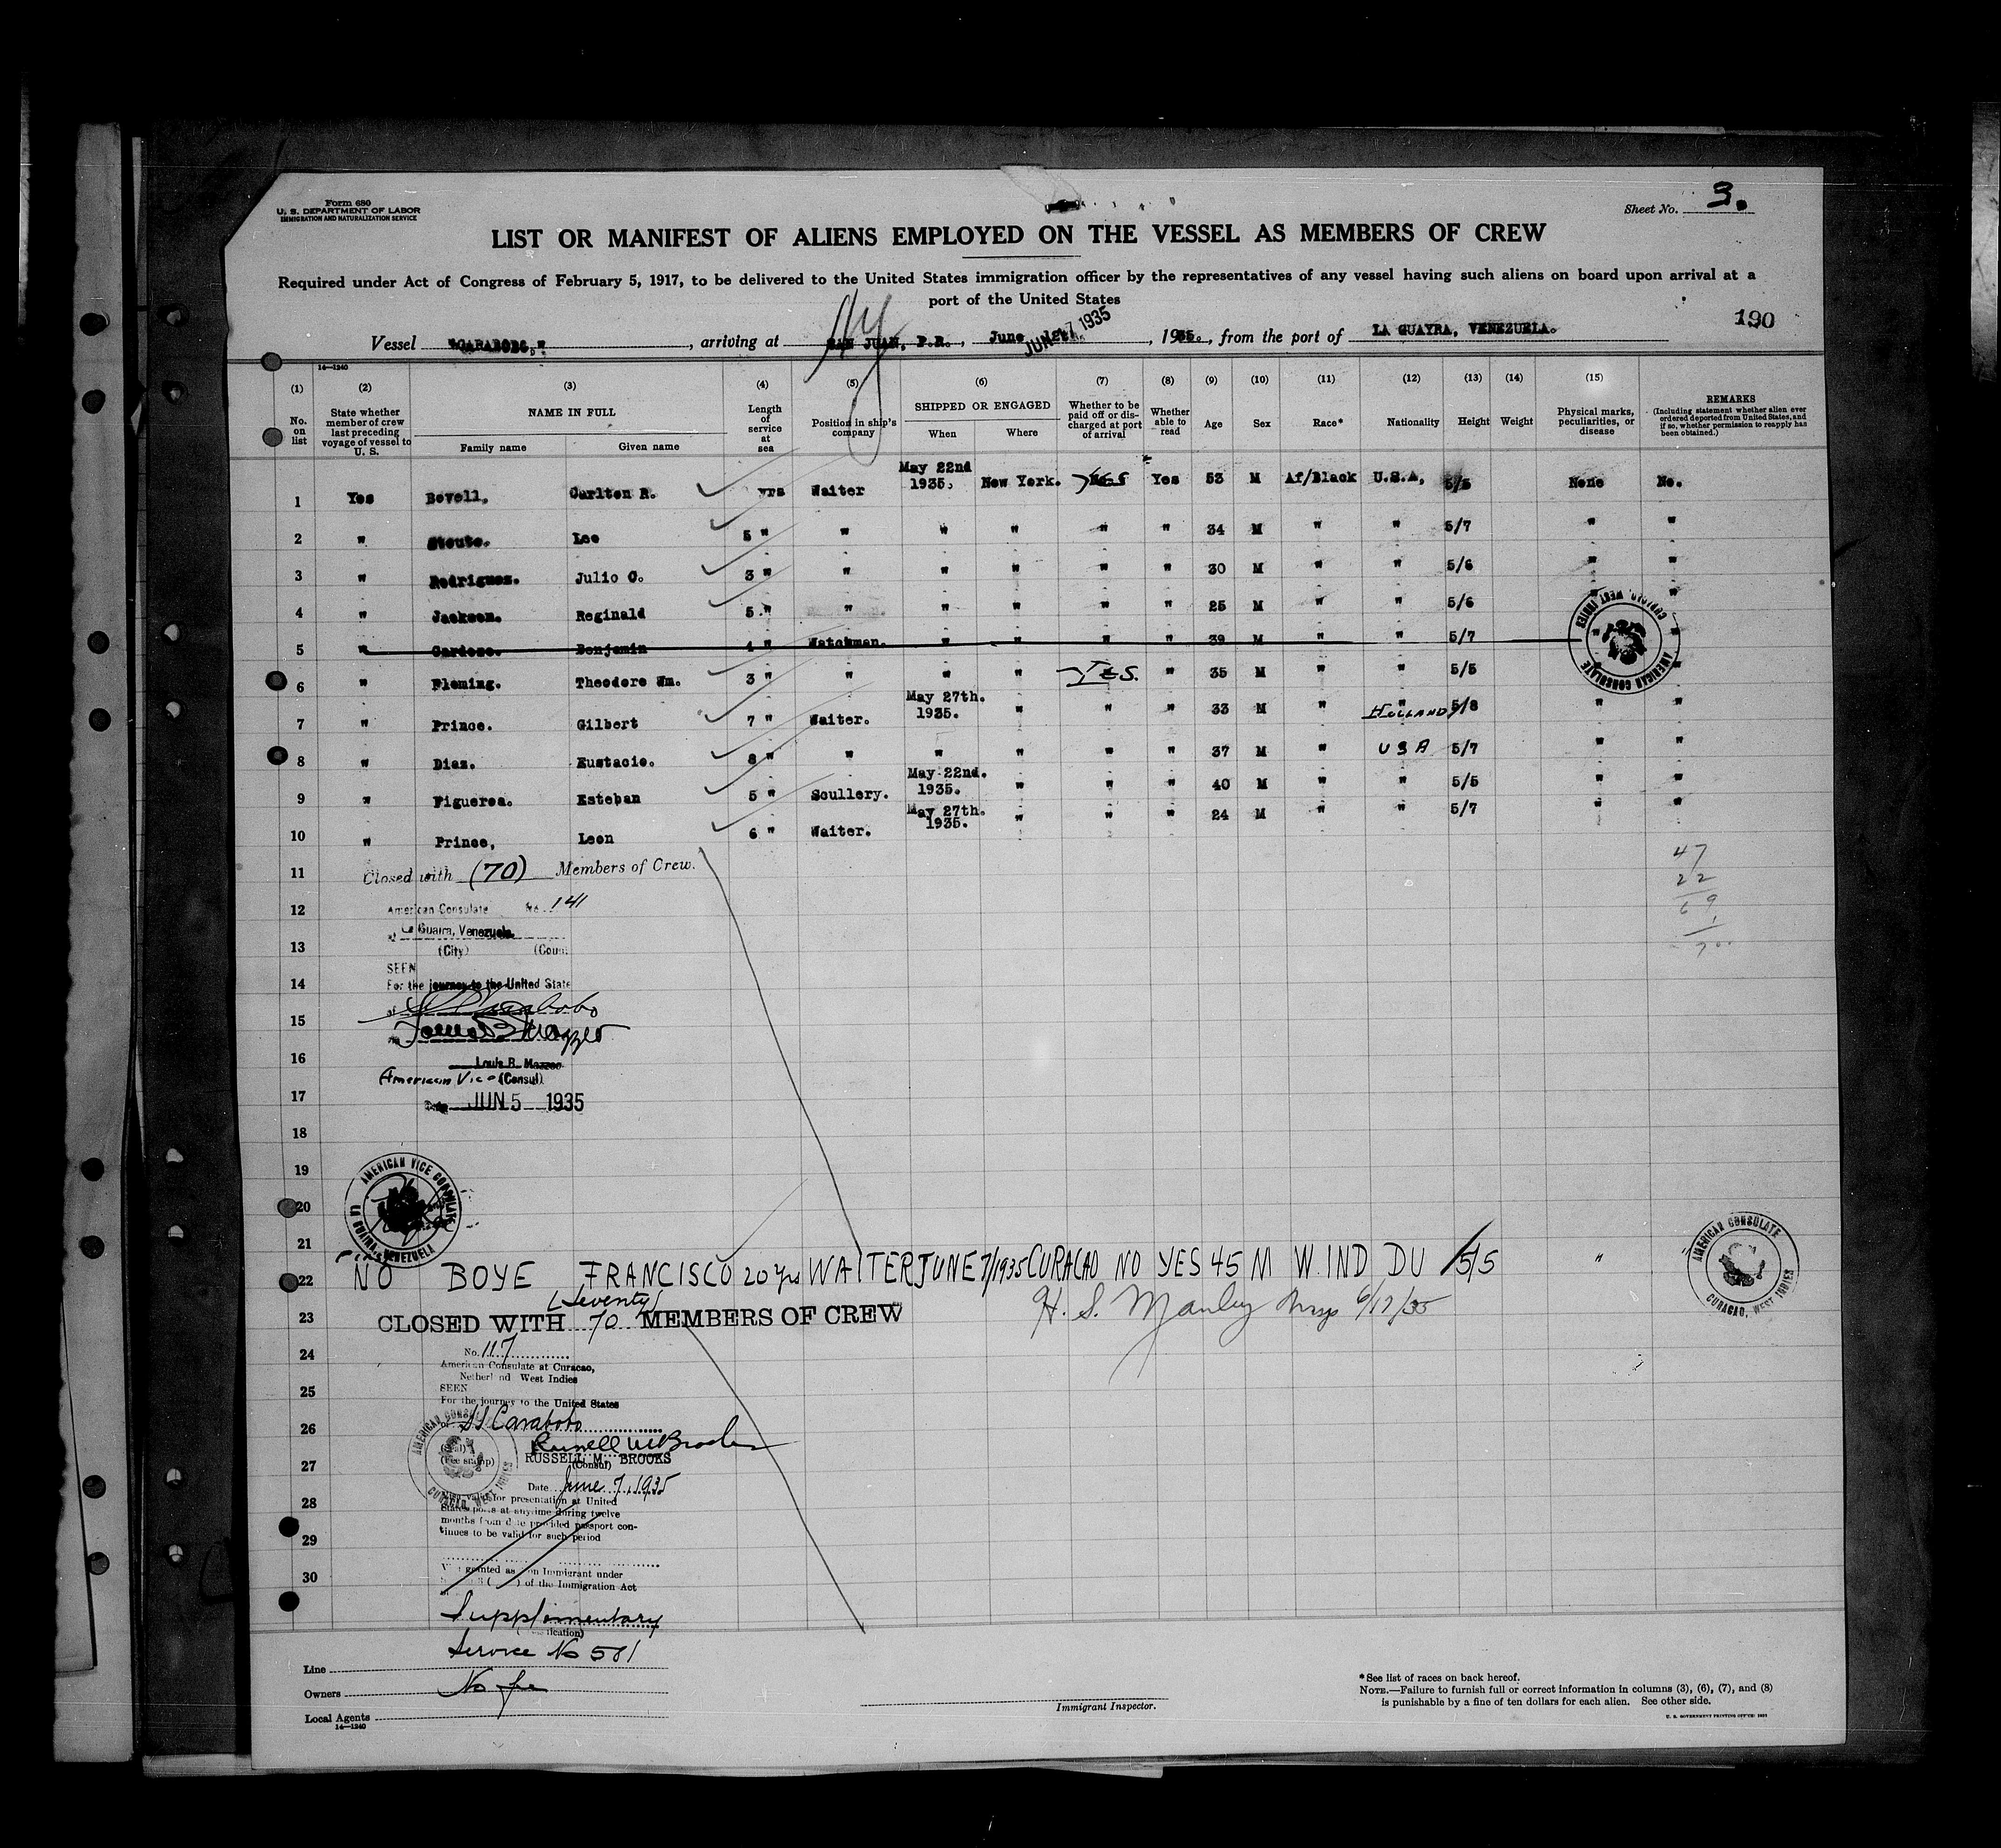 Form 680
U. S. DEPARTMENT OF LABOR
IMMIGRATION AND NATURALIZATION SERVICE
Sheet No. 3.
LIST OR MANIFEST OF ALIENS EMPLOYED ON THE VESSEL AS MEMBERS OF CREW
Required under Act of Congress of February 5, 1917, to be delivered to the United States immigration officer by the representatives of any vessel having such aliens on board upon arrival at a
port of the United States
190
Vessel "CARABOBO," , arriving at SAN JUAN, P.R. , June JUN 17 1935 , 1935. , from the port of LA GUAYRA, VENEZUELA.
NY
14—1240
(1) (2) (3) (4) (5) (6) (7) (8) (9) (10) (11) (12) (13) (14) (15)
No. on list
State whether member of crew last preceding voyage of vessel to U. S.
NAME IN FULL
Family name Given name
Length of service at sea
Position in ship's company
SHIPPED OR ENGAGED
When Where
Whether to be paid off or discharged at port of arrival
Whether able to read
Age Sex Race* Nationality Height Weight
Physical marks, peculiarities, or disease
REMARKS
(Including statement whether alien ever ordered deported from United States, and if so, whether permission to reapply has been obtained.)
1 Yes Bovell, Carlton R. yrs Waiter May 22nd 1935. New York. YES Yes 53 M Af/Black U.S.A, 5/5 None No.
2 " Stoute. Lee 5 " " " " " " 34 M " " 5/7 " "
3 " Rodriguez. Julio C. 3 " " " " " " 30 M " " 5/6 " "
4 " Jackson. Reginald 5 " " " " " " 25 M " " 5/6 "
5 " Cardozo. Benjamin 4 " Watchman. " " " " 39 M " " 5/7 " "
6 " Fleming. Theodore Wm. 3 " " " " YES. " 35 M " " 5/5 "
7 " Prince. Gilbert 7 " Waiter. May 27th. 1935. " " " 33 M " HOLLAND 5/8 " "
8 " Diaz. Eustacio. 8 " " " " " " 37 M " USA 5/7 " "
9 " Figueroa. Esteban 5 " Scullery. May 22nd. 1935. " " " 40 M " " 5/5 " "
10 " Prince, Leon 6 " Waiter. May 27th. 1935. " " " 24 M " " 5/7 " "
11 Closed with (70) Members of Crew.
47
22
69
1
70
12 American Consulate No. 141
La Guaira, Venezuela
13 (City) (Coun
SEEN
14 For the journey to the United State
of SS Carabobo
15
16 Louis B. Mazzeo
American Vice (Consul)
17 Date JUN 5 1935
18
19
20
21
AMERICAN VICE CONSULATE
LA GUAIRA, VENEZUELA
22 NO BOYE FRANCISCO 20 yrs WAITER JUNE 7/1935 CURACAO NO YES 45 M W. IND DU 5/5 " "
(Seventy)
23 CLOSED WITH 70 MEMBERS OF CREW
H. S. Manley Insp 6/17/35
24 No. 117
American Consulate at Curacao,
Netherland West Indies
25 SEEN
For the journey to the United States
26 of SS Carabobo
Russell M Brooks
(Seal)
(Fee stamp) RUSSELL M. BROOKS
27 (Consul)
Date June 7, 1935
28 for presentation at United
States ports at anytime during twelve
months from date provided passport con-
29 tinues to be valid for such period
30 granted as Immigrant under
of the Immigration Act
Supplimentary
Service No 581
No fee
AMERICAN CONSULATE
CURACAO, WEST INDIES
AMERICAN CONSULATE
CURACAO, WEST INDIES
AMERICAN CONSULATE
CURACAO, WEST INDIES
Line
Owners
Local Agents
14—1240
Immigrant Inspector.
*See list of races on back hereof.
NOTE.—Failure to furnish full or correct information in columns (3), (6), (7), and (8)
is punishable by a fine of ten dollars for each alien. See other side.
U. S. GOVERNMENT PRINTING OFFICE: 1931